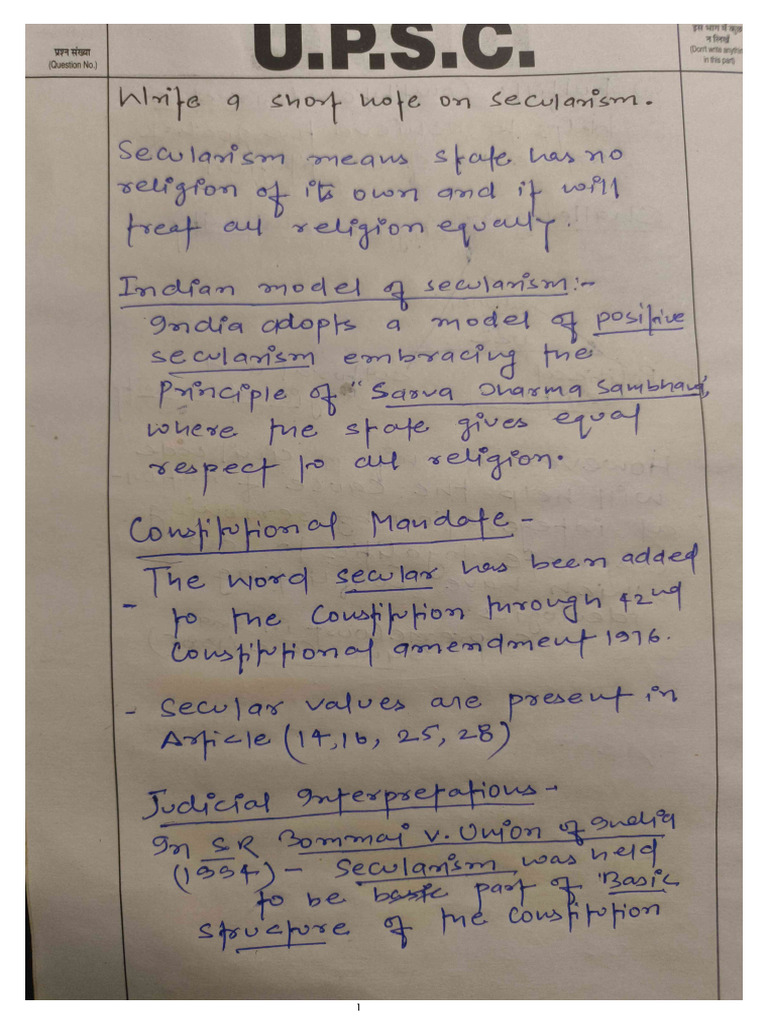 प्रश्न संख्या
(Question No.)
U.P.S.C.
इस भाग में कुछ
न लिखें
(Don't write anythin
in this part)
Write a short note on secularism.
Secularism means state has no
religion of its own and it will
treat all religion equally.
Indian model of secularism:-
India adopts a model of positive
secularism embracing the
Principle of "Sarva Dharma Sambhava",
where the state gives equal
respect to all religion.
Constitutional Mandate -
- The word secular has been added
to the Constitution through 42nd
Constitutional amendment 1976.
- Secular values are present in
Article (14,16, 25, 28)
Judicial Interpretations -
In SR Bommai v. Union of India
(1994) - Secularism was held
to be basic part of 'Basic
structure of the Constitution
1